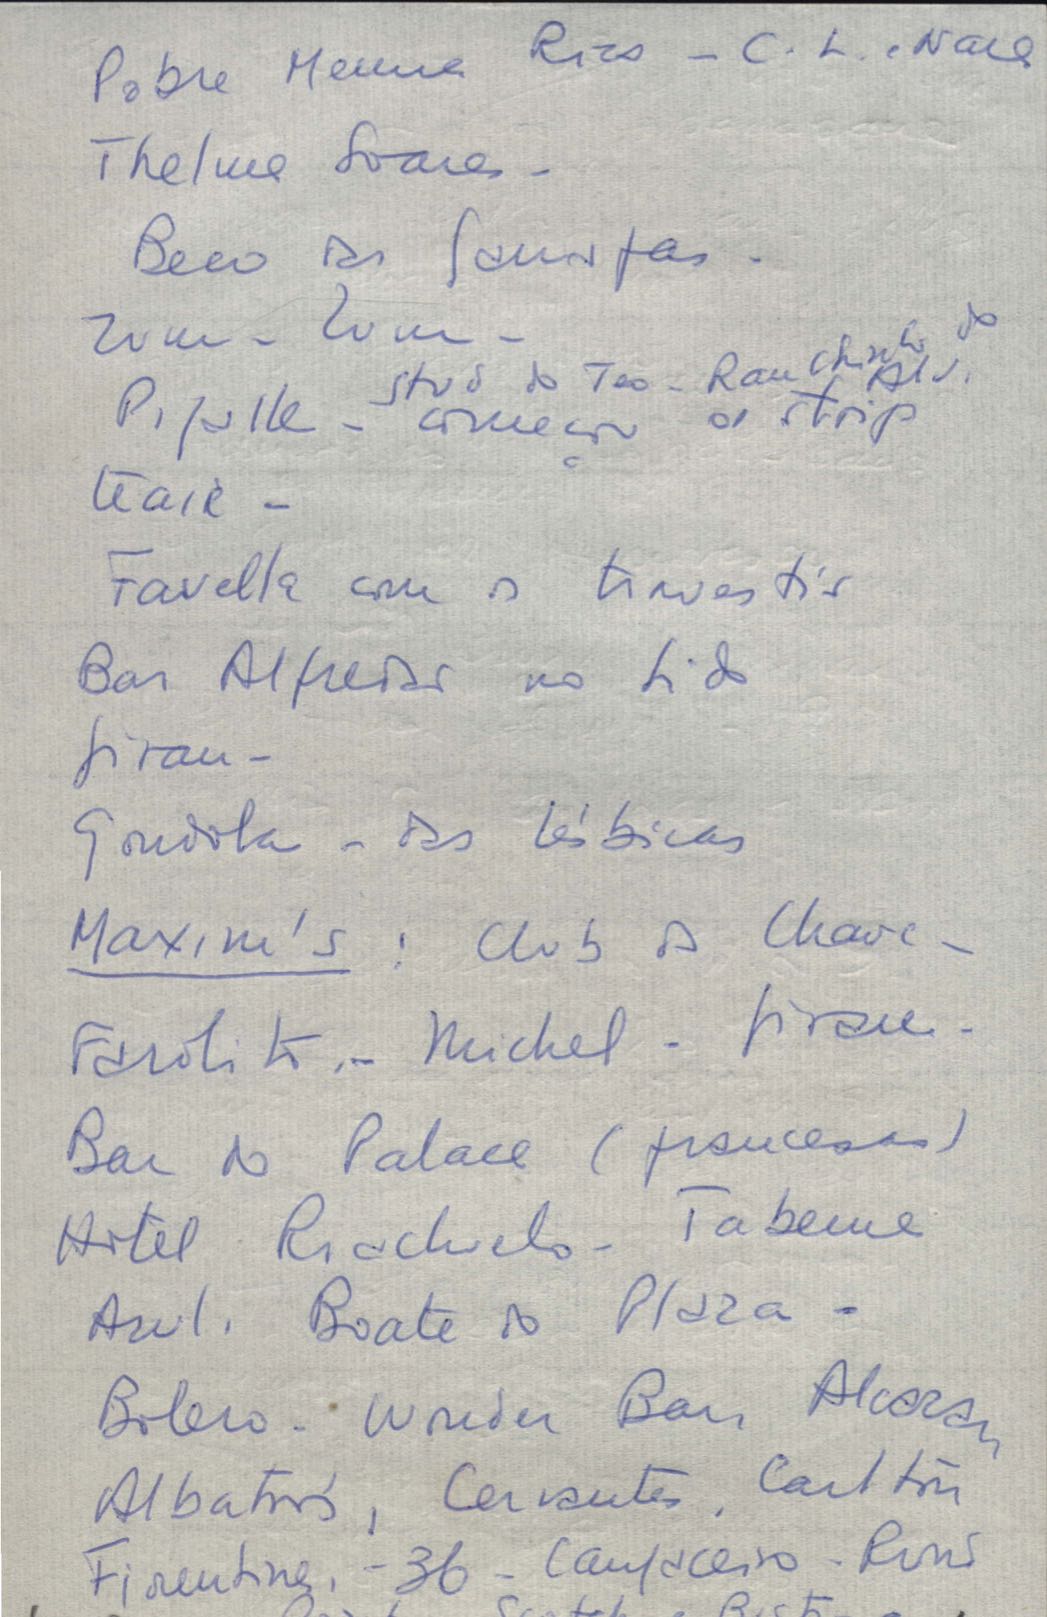 Pobre Menina Rica - C. L. e Nara
Thelma Soares -
Beco das Garrafas -
Zum - Zum -
Stud do Teo - Ranchinho do Alv.
Pigalle - começou o strip
tease -
Favella com os travestis
Bar Alfredão no Lido
Girau -
Gondola - das lésbicas
Maxim's : Club da Chave -
Farolito - Michel - Girau -
Bar do Palace (francesas)
Hotel Riachuelo - Taberna
Azul. Boate do Plaza -
Bolero - Wonder Bar, Alcazar,
Albatrós, Cervantes, Carlton
Fiorentina, - 36 - Cangaceiro - Rond
Scotch e Bistrô